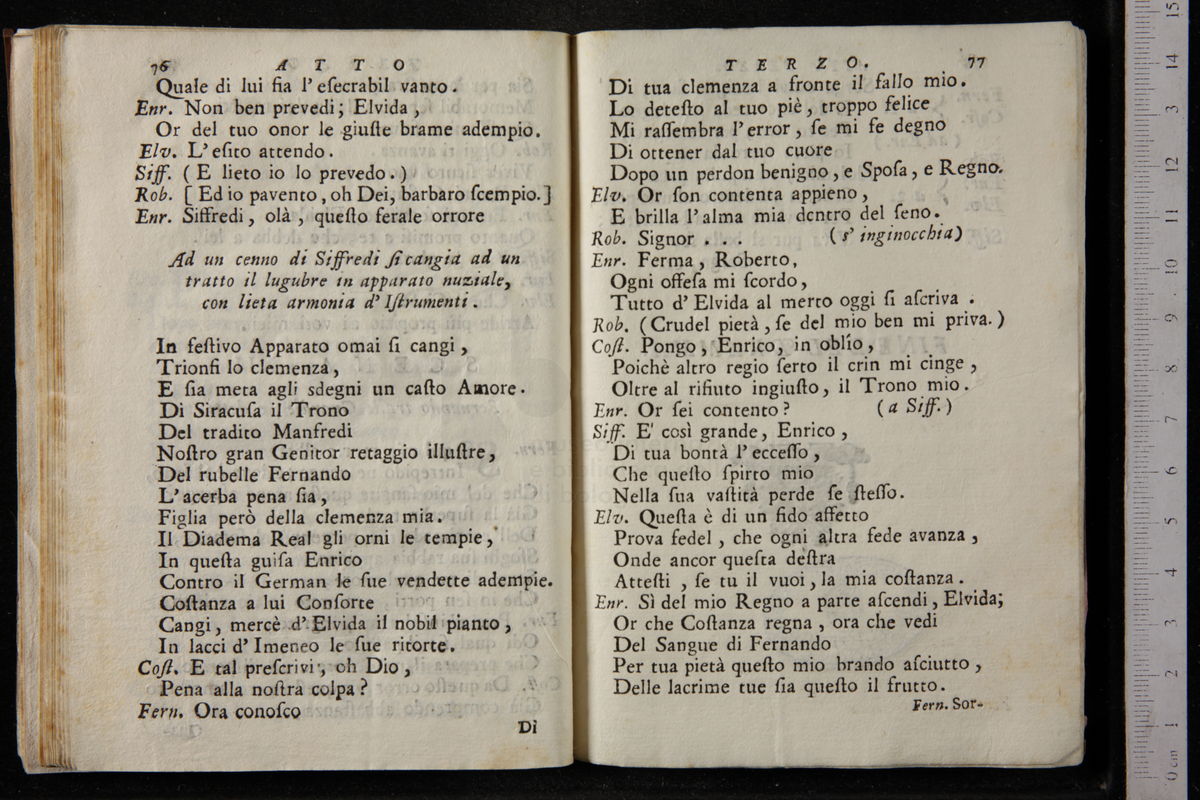 76 A T T O
Quale di lui ſia l' eſecrabil vanto.
Enr. Non ben prevedi; Elvida,
Or del tuo onor le giuſte brame adempio.
Elv. L' eſito attendo.
Siff. (E lieto io lo prevedo.)
Rob. [Ed io pavento, oh Dei, barbaro ſcempio.]
Enr. Siffredi, olà, queſto ferale orrore
Ad un cenno di Siffredi ſi cangia ad un
tratto il lugubre in apparato nuziale,
con lieta armonia d' Iſtrumenti.
In feſtivo Apparato omai ſi cangi,
Trionfi lo clemenza,
E ſia meta agli sdegni un caſto Amore.
Di Siracuſa il Trono
Del tradito Manfredi
Noſtro gran Genitor retaggio illuſtre,
Del rubelle Fernando
L' acerba pena ſia,
Figlia però della clemenza mia.
Il Diadema Real gli orni le tempie,
In queſta guiſa Enrico
Contro il German le ſue vendette adempie.
Coſtanza a lui Conſorte
Cangi, mercè d' Elvida il nobil pianto,
In lacci d' Imeneo le ſue ritorte.
Coſt. E tal preſcrivi, oh Dio,
Pena alla noſtra colpa?
Fern. Ora conoſco
Di
T E R Z O. 77
Di tua clemenza a fronte il fallo mio.
Lo deteſto al tuo piè, troppo felice
Mi raſſembra l'error, ſe mi fe degno
Di ottener dal tuo cuore
Dopo un perdon benigno, e Spoſa, e Regno.
Elv. Or ſon contenta appieno,
E brilla l'alma mia dentro del ſeno.
Rob. Signor . . . (s' inginocchia)
Enr. Ferma, Roberto,
Ogni offeſa mi ſcordo,
Tutto d' Elvida al merto oggi ſi aſcriva.
Rob. (Crudel pietà, ſe del mio ben mi priva.)
Coſt. Pongo, Enrico, in oblìo,
Poichè altro regio ſerto il crin mi cinge,
Oltre al rifiuto ingiuſto, il Trono mio.
Enr. Or ſei contento? (a Siff.)
Siff. E' così grande, Enrico,
Di tua bontà l' ecceſſo,
Che queſto ſpirto mio
Nella ſua vaſtità perde ſe ſteſſo.
Elv. Queſta è di un fido affetto
Prova fedel, che ogni altra fede avanza,
Onde ancor queſta deſtra
Atteſti, ſe tu il vuoi, la mia coſtanza.
Enr. Sì del mio Regno a parte aſcendi, Elvida;
Or che Coſtanza regna, ora che vedi
Del Sangue di Fernando
Per tua pietà queſto mio brando aſciutto,
Delle lacrime tue ſia queſto il frutto.
Fern. Sor-